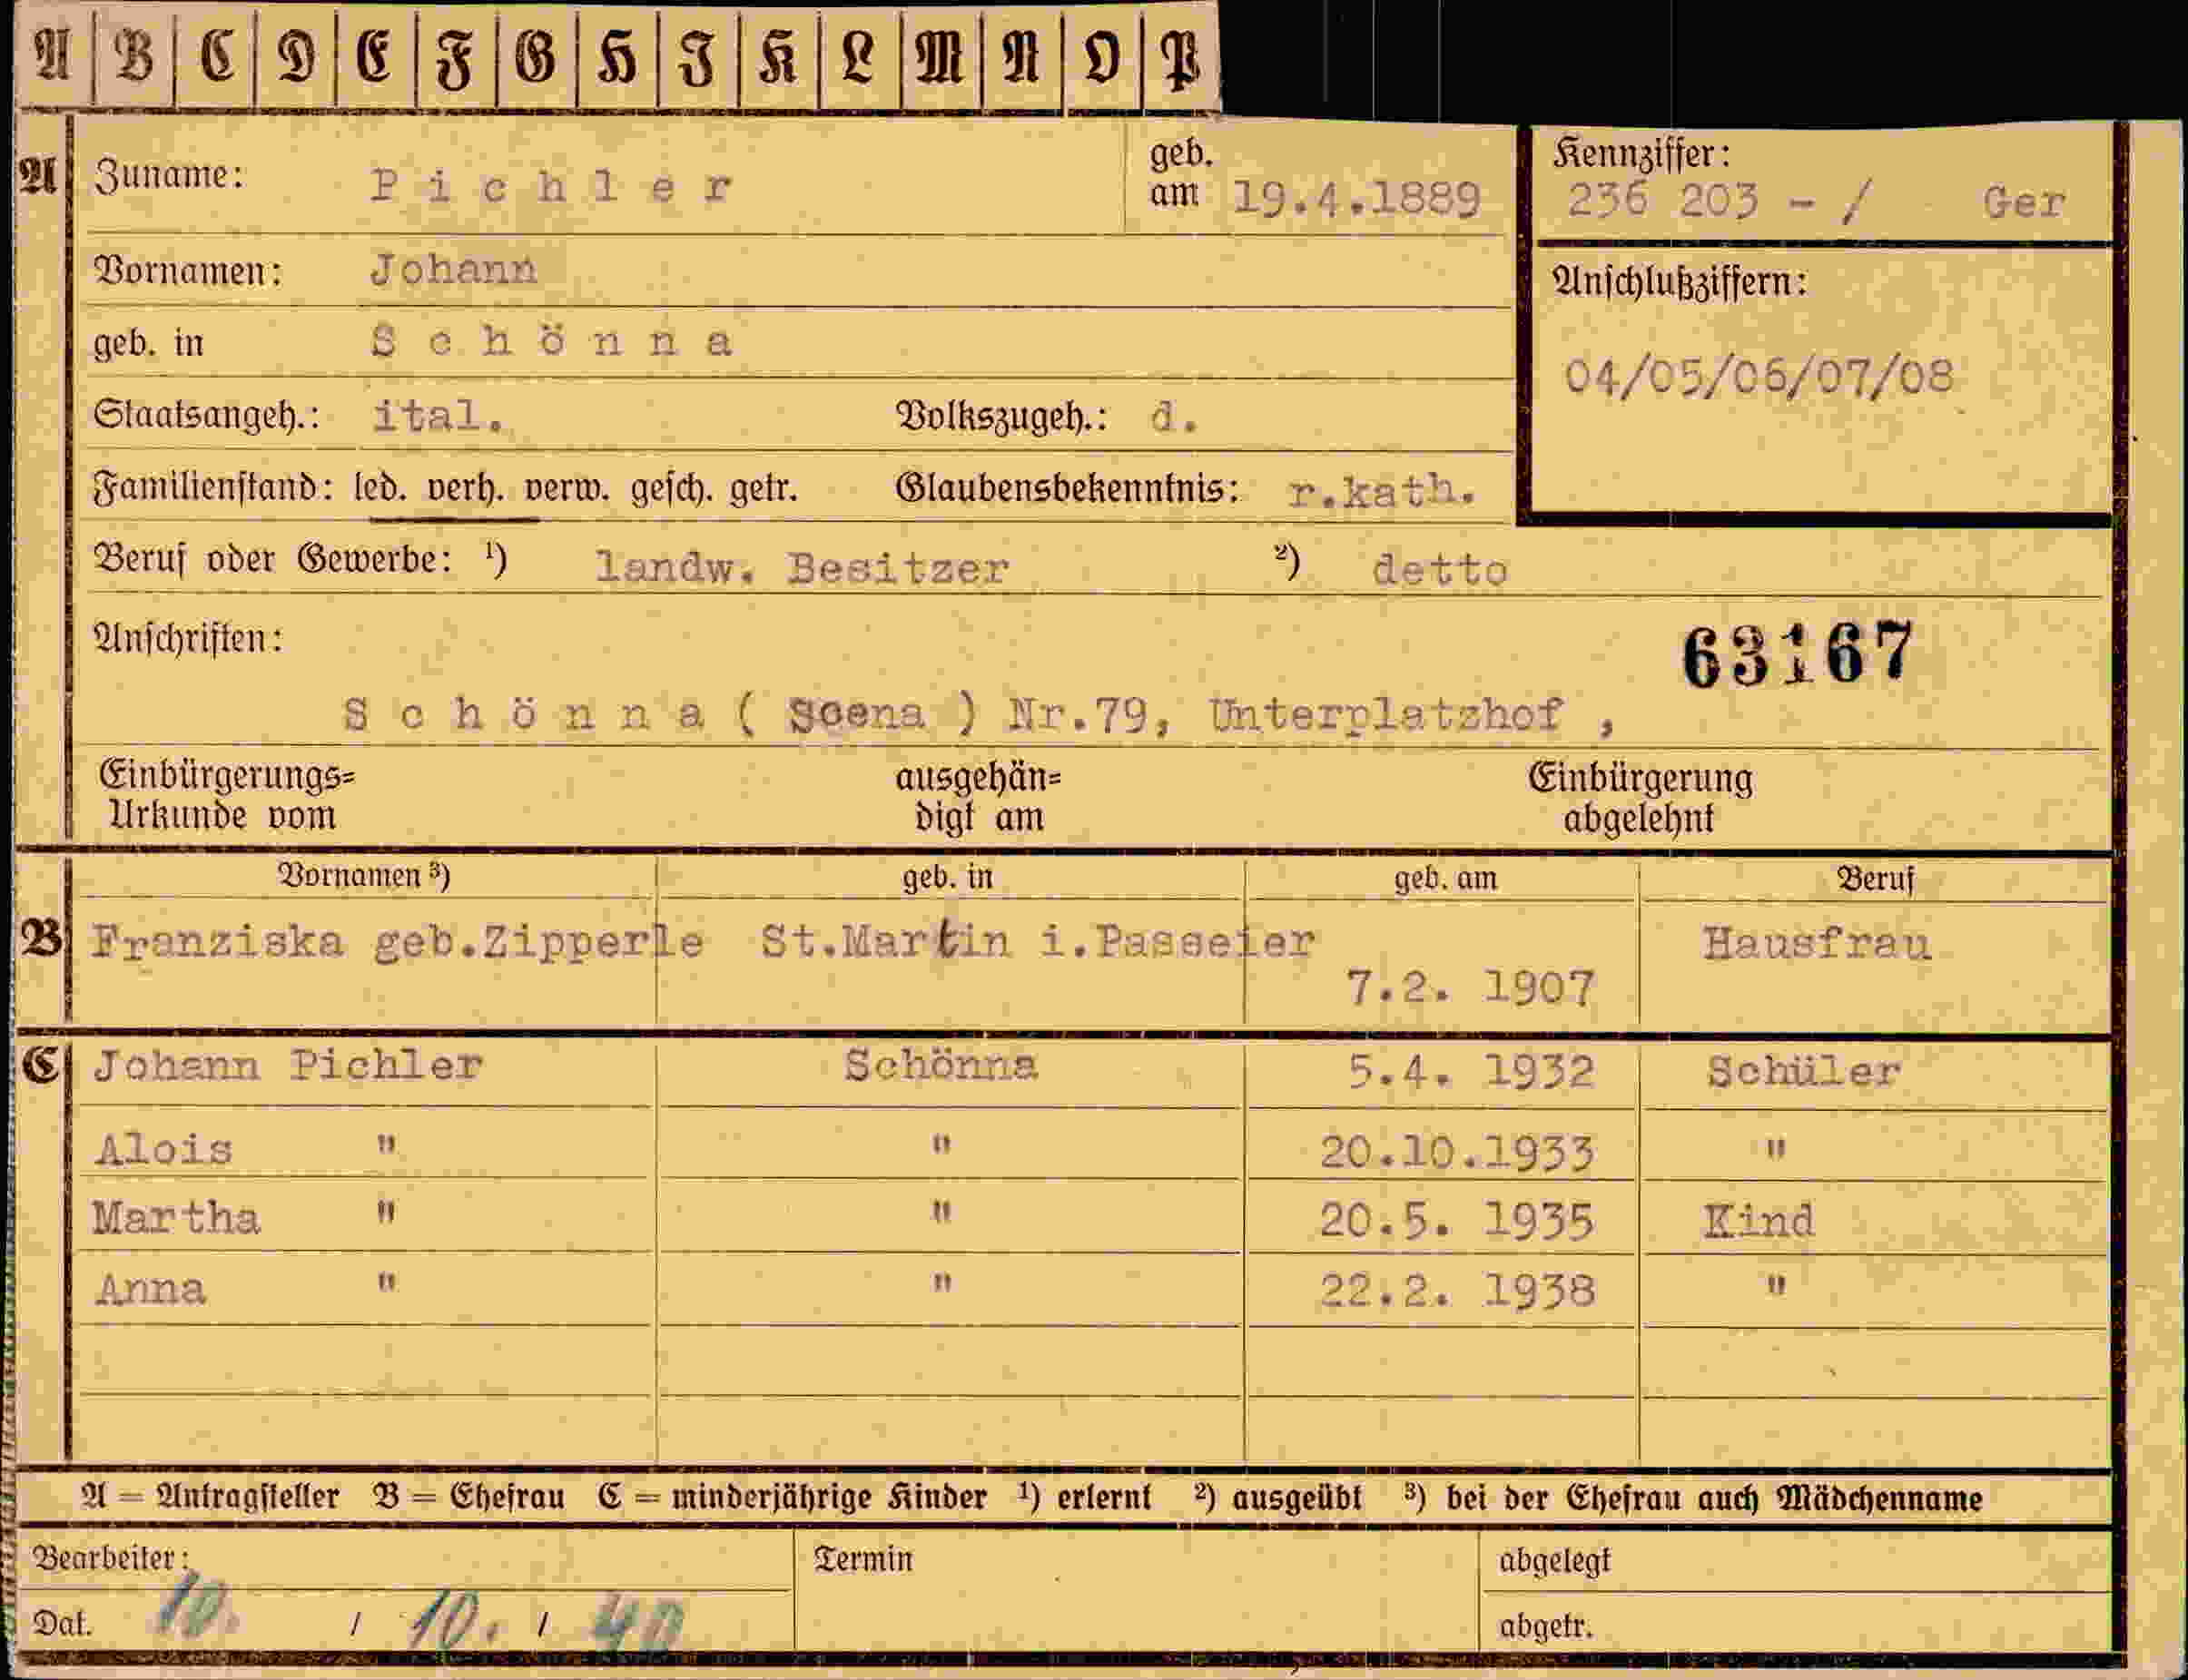 A B C D E F G H I K L M N O P
A Zuname: Pichler geb. am 19.4.1889 Kennziffer: 236 203 - / Ger
Vornamen: Johann Anschlußziffern:
geb. in Schönna 04/05/06/07/08
Staatsangeh.: ital. Volkszugeh.: d.
Familienstand: led. verh. verw. gesch. getr. Glaubensbekenntnis: r.kath.
Beruf oder Gewerbe: ¹) landw. Besitzer ²) detto
Anschriften: 63167
Schönna ( Scena ) Nr.79, Unterplatzhof ,
Einbürgerungs= ausgehän= Einbürgerung
Urkunde vom digt am abgelehnt
Vornamen ³) geb. in geb. am Beruf
B Franziska geb.Zipperle St.Martin i.Passeier Hausfrau
7.2. 1907
C Johann Pichler Schönna 5.4. 1932 Schüler
Alois " " 20.10.1933 "
Martha " " 20.5. 1935 Kind
Anna " " 22.2. 1938 "
A = Antragsteller B = Ehefrau C = minderjährige Kinder ¹) erlernt ²) ausgeübt ³) bei der Ehefrau auch Mädchenname
Bearbeiter: Termin abgelegt
Dat. 10. / 10. / 40 abgetr.